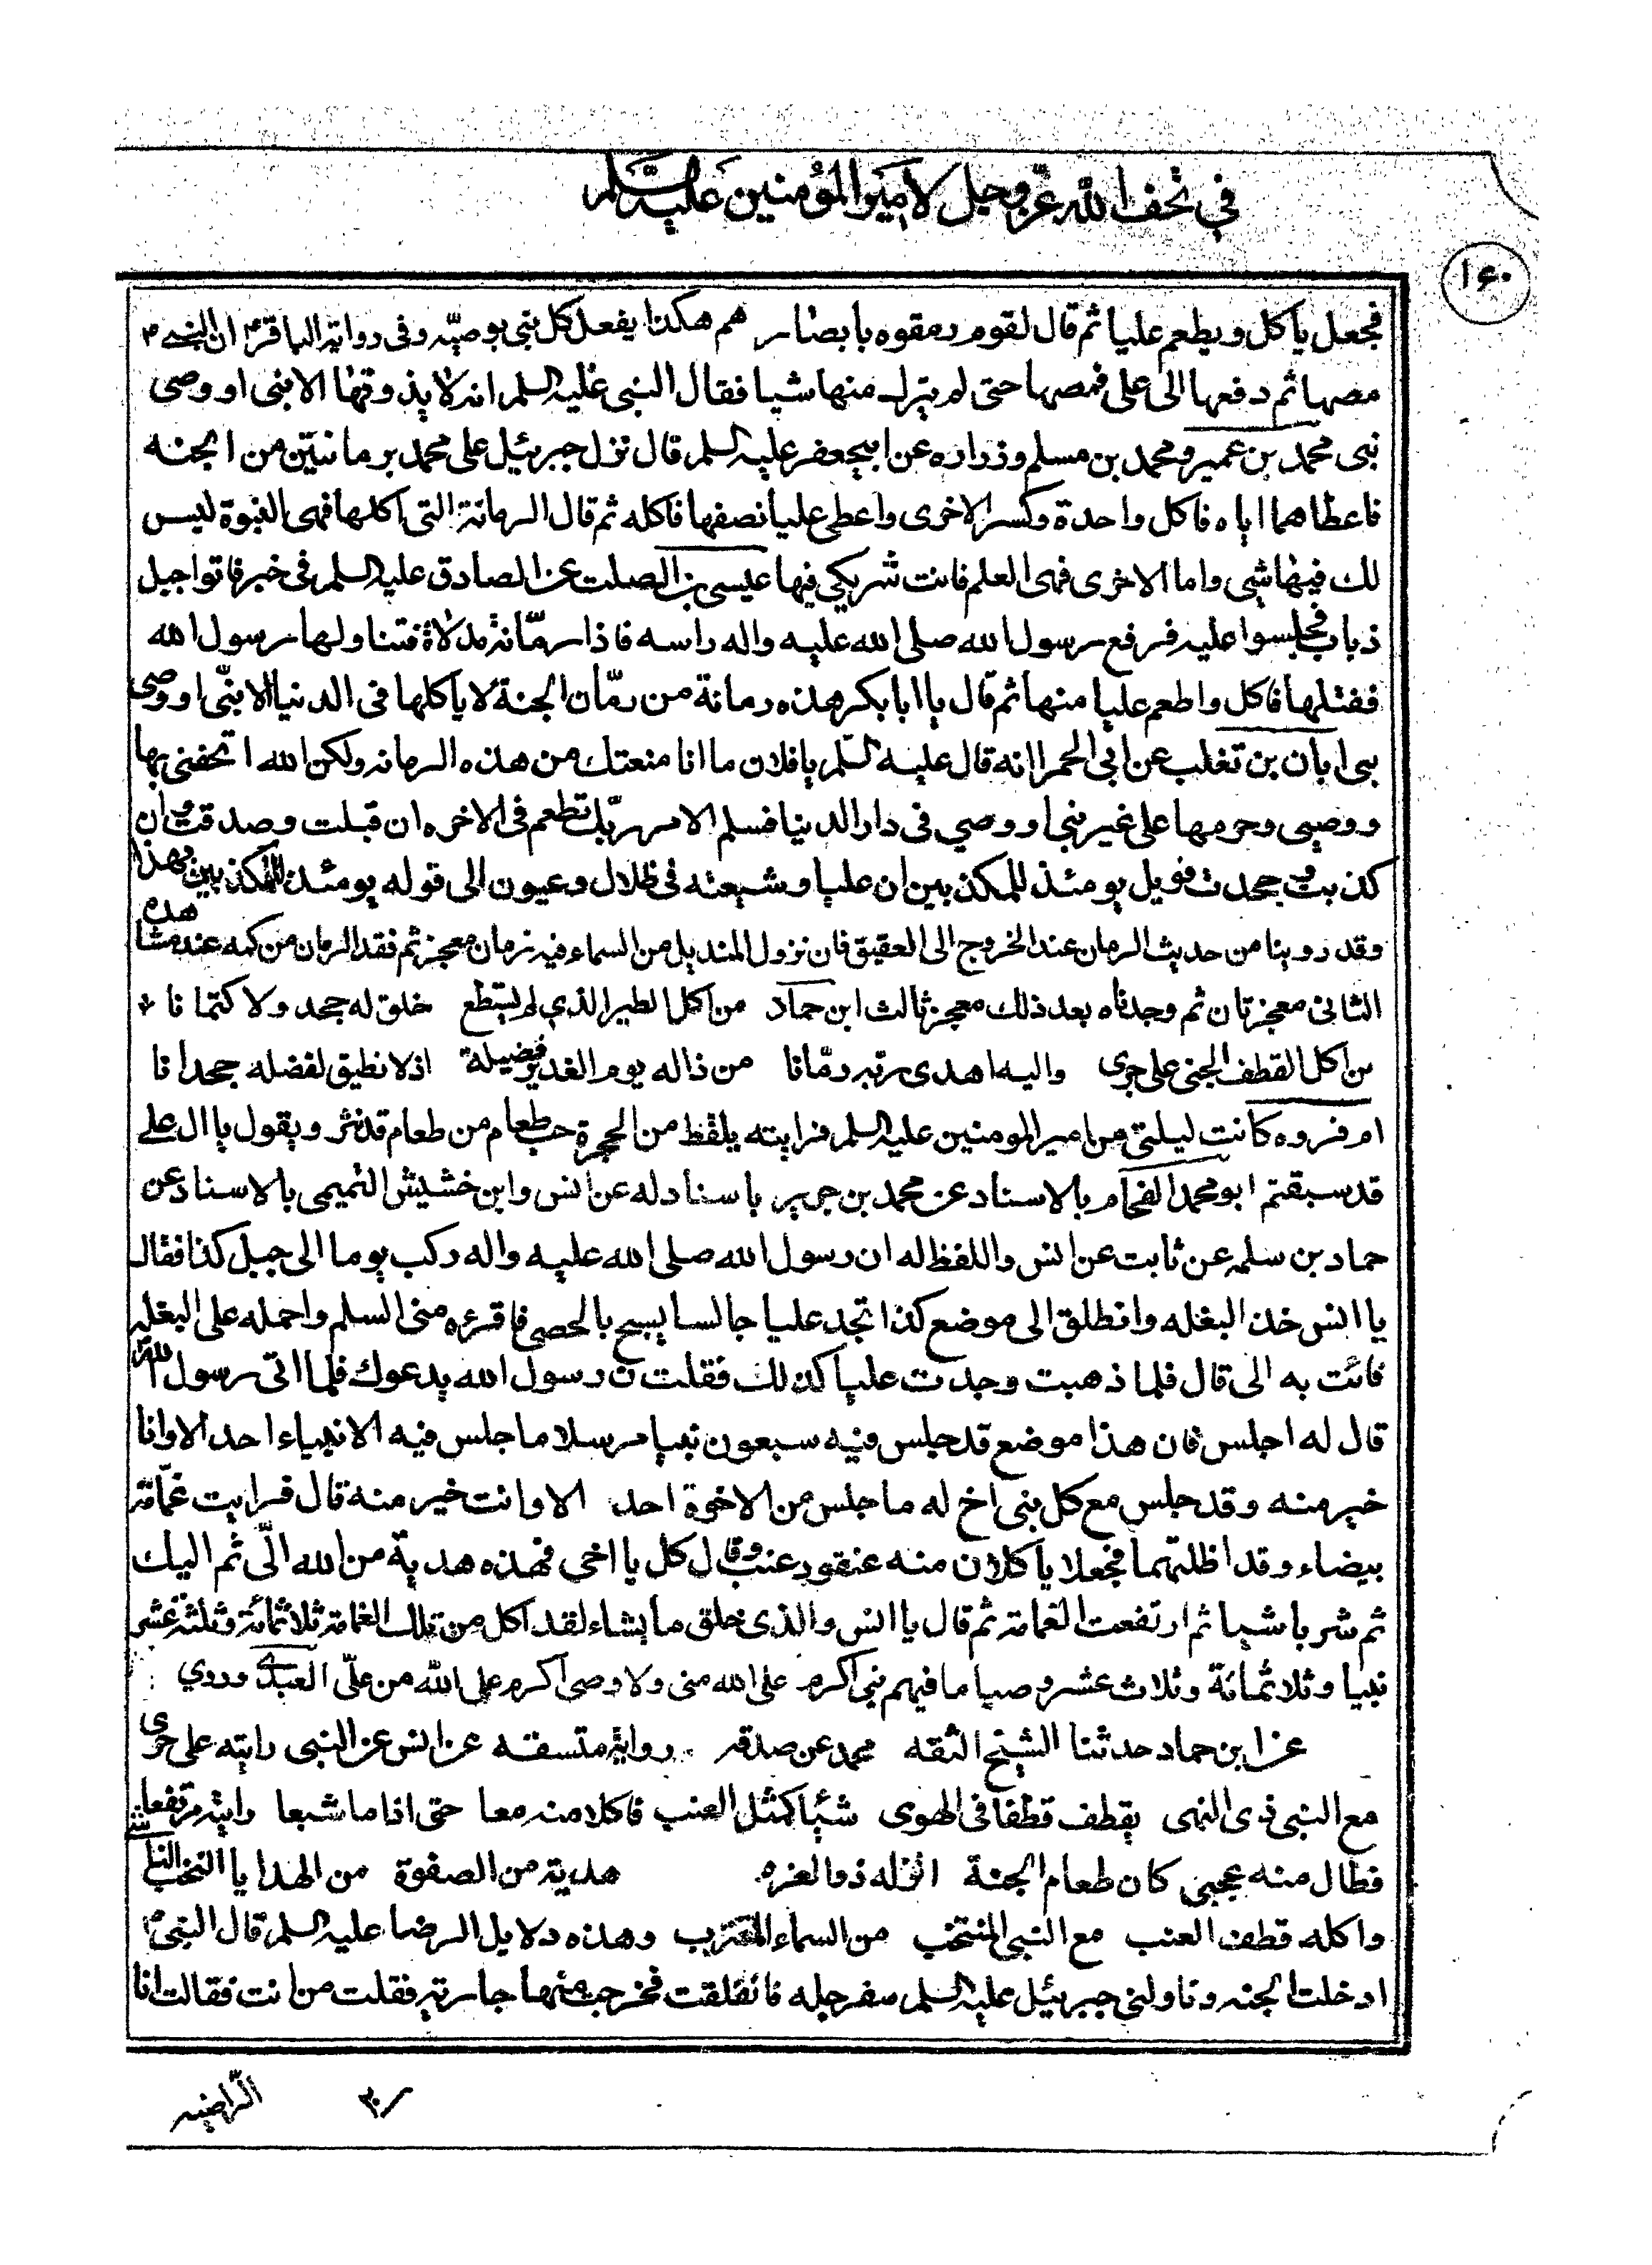 في تحف الله عزّ وجل لأمير المؤمنين عليه السّلم
١٦٠
فجعل ياكل ويطعم عليا ثم قال لقوم رمقوه بابصارهم هكذا يفعل كل نبي بوصيّه وفى رواية الباقر ان النبي
مصها ثم دفعها الى على فمصها حتى لم يترك منها شيا فقال النبي عليه السلم انه لا يذوقها الا نبى او وصى
نبى محمد بن عمير ومحمد بن مسلم وزراره عن ابيجعفر عليه السلم قال نزل جبرئيل على محمد برمانتين من الجنه
فاعطاهما اياه فاكل واحدة وكسر الاخرى واعطى عليا نصفها فاكله ثم قال الرمانة التى اكلها فهى النبوة ليس
لك فيها شى واما الاخرى فهى العلم فانت شريكي فيها عيسى بن الصلت عن الصادق عليه السلم فى خبر فاتوا جبل
ذباب فجلسوا عليه فرفع رسول الله صلى الله عليه واله راسه فاذا رمّانة مدلاة فتناولها رسول الله
ففتلها فاكل واطعم عليا منها ثم قال يا ابا بكر هذه رمانة من رمّان الجنة لا ياكلها فى الدنيا الا نبّى او وصى
نبى ابان بن تغلب عن ابى الحمرا انه قال عليه السّلم يا فلان ما انا منعتك من هذه الرمانه ولكن الله اتحفنى بها
ووصيى وحرمها على غير نبى او وصي فى دار الدنيا فسلم الامر ربّك تطعم فى الاخره ان قبلت وصدقت وان
كذبت وجحدت فويل يومئذ للمكذبين ان عليا وشيعته فى ظلال وعيون الى قوله يومئذ للمكذبين بهذا
وقد روينا من حديث الرمان عند الخروج الى العقيق فان نزول المنديل من السماء فيه رمان معجز ثم فقد الرمان من كمه عند مشاهده
الثانى معجزتان ثم وجدناه بعد ذلك معجز ثالث ابن حماد من اكل الطير الذي لم يستطع خلق له جحد ولا كتمانا
من اكل القطف الجنى على حرى واليه اهدى ربه رمّانا من ذا له يوم الغدير فضيلة اذ لا نطيق لفضله جحدانا
ام فروه كانت ليلتى من امير المومنين عليه السلم فرايته يلقط من الحجرة حب طعام من طعام قد نثر ويقول يا ال على
قد سبقتم ابو محمد الفحام بالاسناد عن محمد بن جرير باسناد له عن انس وابن خشيش التميمى بالاسناد عن
حماد بن سلمه عن ثابت عن انس واللفظ له ان رسول الله صلى الله عليه واله ركب يوما الى جبل كذا فقال
يا انس خذ البغله وانطلق الى موضع كذا تجد عليا جالسا يسبح بالحصى فاقرئه منى السلم واحمله على البغله
فائت به الى قال فلما ذهبت وجدت عليا كذلك فقلت ان رسول الله يدعوك فلما اتى رسول الله
قال له اجلس فان هذا موضع قد جلس فيه سبعون نبيا مرسلا ما جلس فيه الانبياء احد الا وانا
خير منه وقد جلس مع كل نبى اخ له ما جلس من الاخوة احد الا وانت خير منه قال فرايت غمّامة
بيضاء وقد اظلتهما فجعلا ياكلان منه عنقود عنب وقال كل يا اخى فهذه هدية من الله الّى ثم اليك
ثم شربا شيا ثم ارتفعت الغمامة ثم قال يا انس والذى خلق ما يشاء لقد اكل من تلك الغمامة ثلاثمائة وثلثة عشر
نبيا وثلاثمائة وثلاث عشر وصيا ما فيهم نبى اكرم على الله منى ولا وصى اكرم على اللّه من علّى العبدى وروي
عن ابن حماد حدثنا الشيخ الثقه محمد عن صدقه رواية متسقه عن انس عن النبى رايته على حرى
مع النبى ذى النهى يقطف قطفا فى الهوى شيئا كمثل العنب فاكلا منه معا حتى اذا ما شبعا رايته مرتفعا
فطال منه عجبى كان طعام الجنة انزله ذو العزه هدية من الصفوة من الهدايا النخب
واكله قطف العنب مع النبى المنتخب من السماء المقترب وهذه دلايل الرضا عليه السلم قال النبى
ادخلت الجنه وناولنى جبرئيل عليه السلم سفرجله فانفلقت فخرجت منها جارية فقلت من انت فقالت انا
الرّاضيه